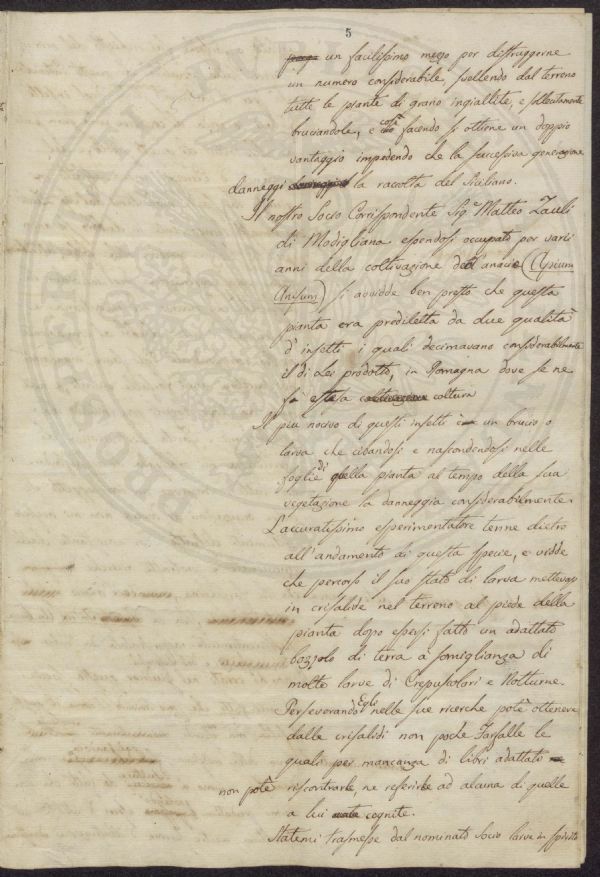 5
un facilissimo mezzo per distruggerne
un numero considerabile svellendo dal terreno
tutte le piante di grano ingiallite, e sollecitamente
bruciandole, e così facendo si ottiene un doppio
vantaggio impedendo che la successiva generazione
danneggi la raccolta del Siciliano.
Il nostro Socio Corrispondente Sig.r Matteo Zauli
di Modigliana essendosi occupato per varii
anni della coltivazione dell'anacio (Apium
Anisum) si avvidde ben presto che questa
pianta era prediletta da due qualità
d'insetti i quali decimavano considerabilmente
il di Lei prodotto, in Romagna dove se ne
fà estesa coltivazione coltura
Il più nocivo di questi insetti è un brucio o
larva che cibandosi e nascondendosi nelle
foglie di quella pianta al tempo della sua
vegetazione la danneggia considerabilmente.
L'accuratissimo esperimentatore tenne dietro
all'andamento di questa specie, e vidde
che percorso il suo stato di larva mettevasi
in crisalide nel terreno al piede della
pianta dopo essersi fatto un adattato
bozzolo di terra a somiglianza di
molte larve di Crepuscolari e Notturne.
Perseverando Egli nelle sue ricerche potè ottenere
dalle crisalidi non poche Farfalle le
quali per mancanza di libri adattati
non potè riscontrarle, ne referirle ad alcuna di quelle
a lui cognite.
Statemi trasmesse dal nominato Socio larve in spirito